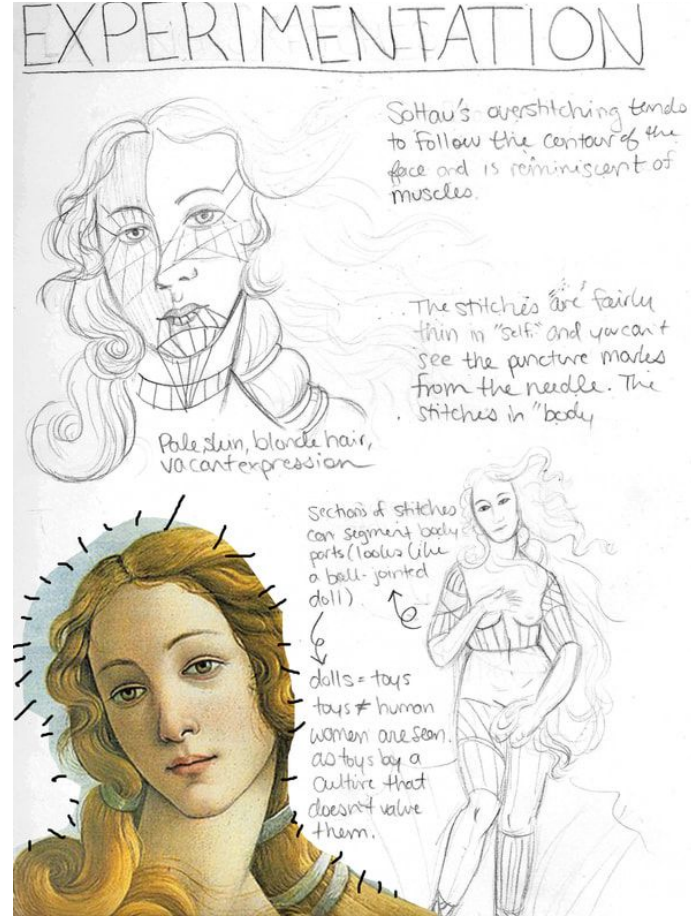 EXPERIMENTATION
Soltau's overstitching tends
to follow the contour of the
face and is reminiscent of
muscles.
The stitches "are" fairly
thin in "self" and you can't
see the puncture marks
from the needle. The
stitches in "body
Pale skin, blonde hair,
vacant expression
sections of stitches
can segment body
parts (looks like
a ball-jointed
doll)
dolls = toys
toys ≠ human
women are seen
as toys by a
culture that
doesn't value
them.